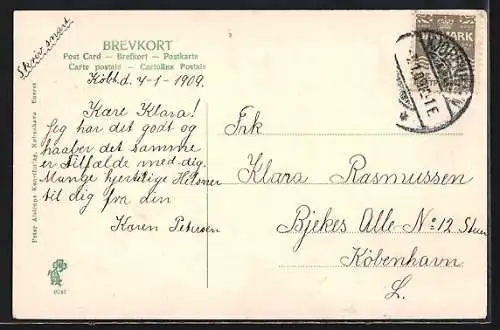 Skriv snart
BREVKORT
Post Card — Brefkort — Postkarte
Carte postale — Cartolina Postale
Kobhd. 4-1-1909.
Kære Klara!
Jeg har det godt og
haaber det samme
er Tilfælde med dig.
Mange hjertelige Hilsner
til dig fra din
Karen Petersen
Frk
Klara Rasmussen
Bjekes Alle No 12 Stuen
København
L.
MARK
Peter Alstrups Kunstforlag, København Eneret